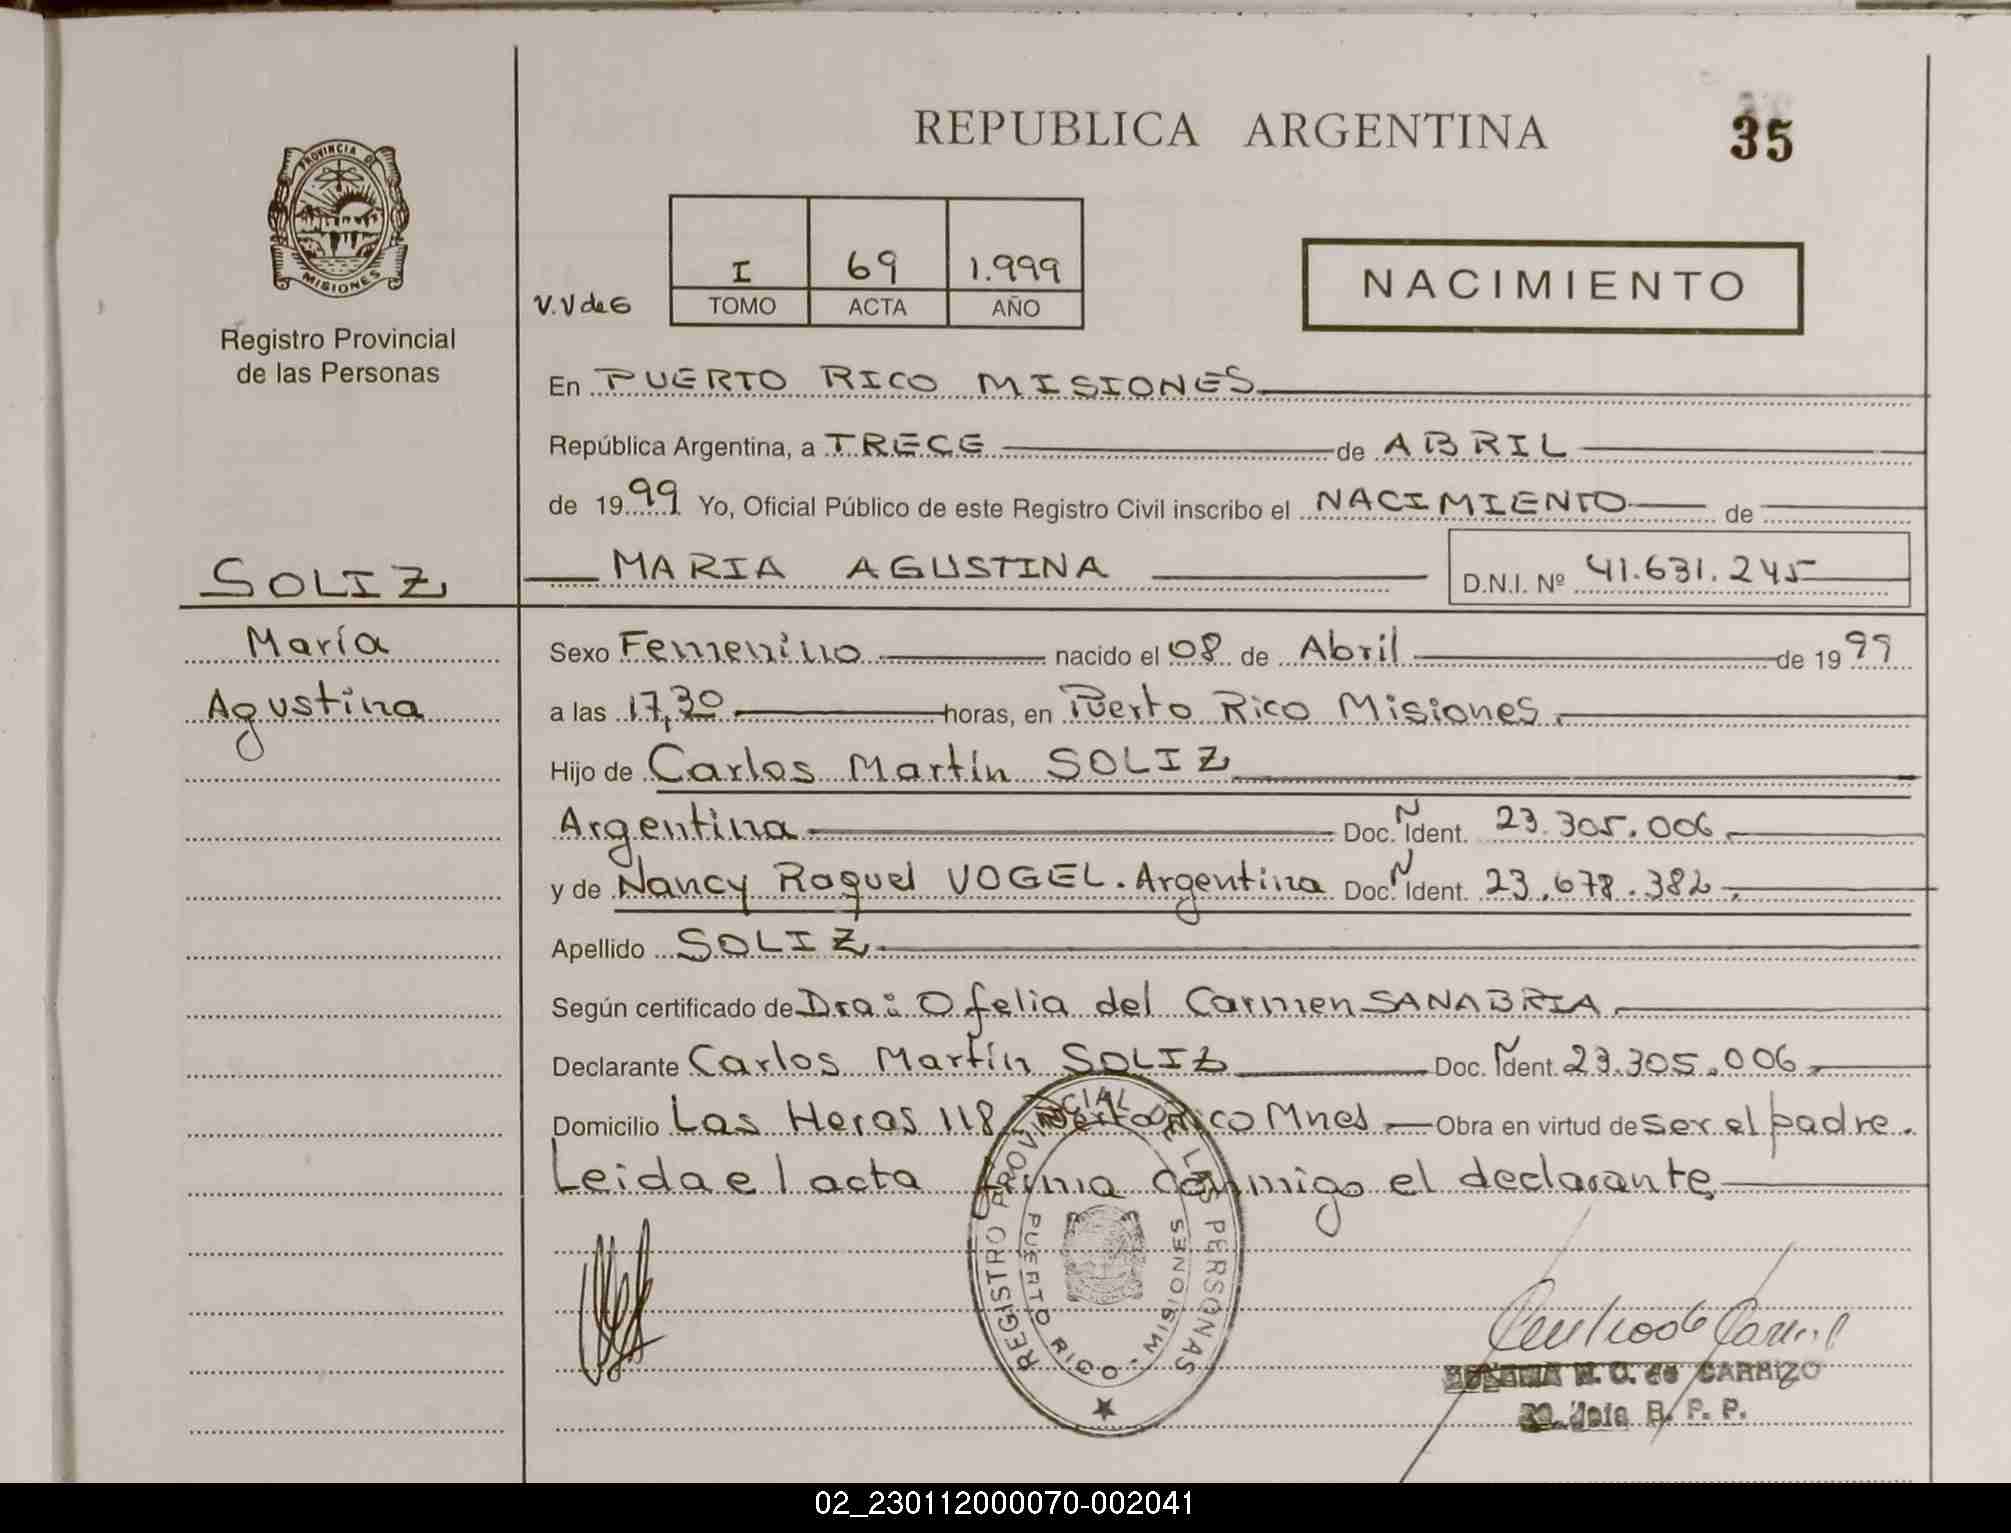 REPUBLICA ARGENTINA
35
PROVINCIA DE
MISIONES
Registro Provincial
de las Personas
V.V de G
I 69 1.999
TOMO ACTA AÑO
NACIMIENTO
En PUERTO RICO MISIONES
República Argentina, a TRECE de ABRIL
de 1999 Yo, Oficial Público de este Registro Civil inscribo el NACIMIENTO de
SOLIZ
MARIA AGUSTINA D.N.I. Nº 41.631.245
María
Agustina
Sexo Femenino nacido el 08 de Abril de 1999
a las 17,30 horas, en Puerto Rico Misiones.
Hijo de Carlos Martín SOLIZ
Argentina Doc. Ident. 23.305.006
y de Nancy Raquel VOGEL. Argentina Doc. Ident. 23.678.382
Apellido SOLIZ
Según certificado de Dra: Ofelia del Carmen SANABRIA
Declarante Carlos Martín SOLIZ Doc. Ident. 23.305.006
Domicilio Las Heras 118 Puerto Rico Mnes Obra en virtud de ser el padre.
Leida el acta firma conmigo el declarante
REGISTRO PROVINCIAL DE LAS PERSONAS
PUERTO RICO - MISIONES
N. O. de CARRIZO
Jefa R. P. P.
02_230112000070-002041